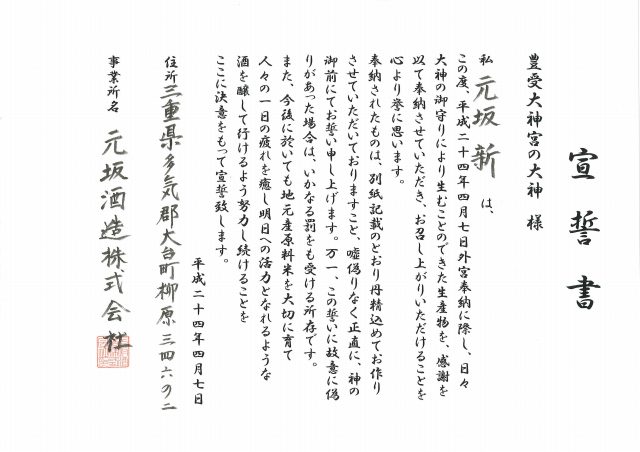 宣誓書
豊受大神宮の大神 様
私 元坂 新 は、
この度、平成二十四年四月七日外宮奉納に際し、日々
大神の御守りにより生むことのできた生産物を、感謝を
以て奉納させていただき、お召し上がりいただけることを
心より誉に思います。
奉納されたものは、別紙記載のとおり丹精込めてお作り
させていただいておりますこと、嘘偽りなく正直に、神の
御前にてお誓い申し上げます。万一、この誓いに故意に偽
りがあった場合は、いかなる罰をも受ける所存です。
また、今後に於いても地元産原料米を大切に育て
人々の一日の疲れを癒し明日への活力となれるような
酒を醸して行けるよう努力し続けることを
ここに決意をもって宣誓致します。
平成二十四年四月七日
住所 三重県多気郡大台町柳原三四六の二
事業所名 元坂酒造株式会社